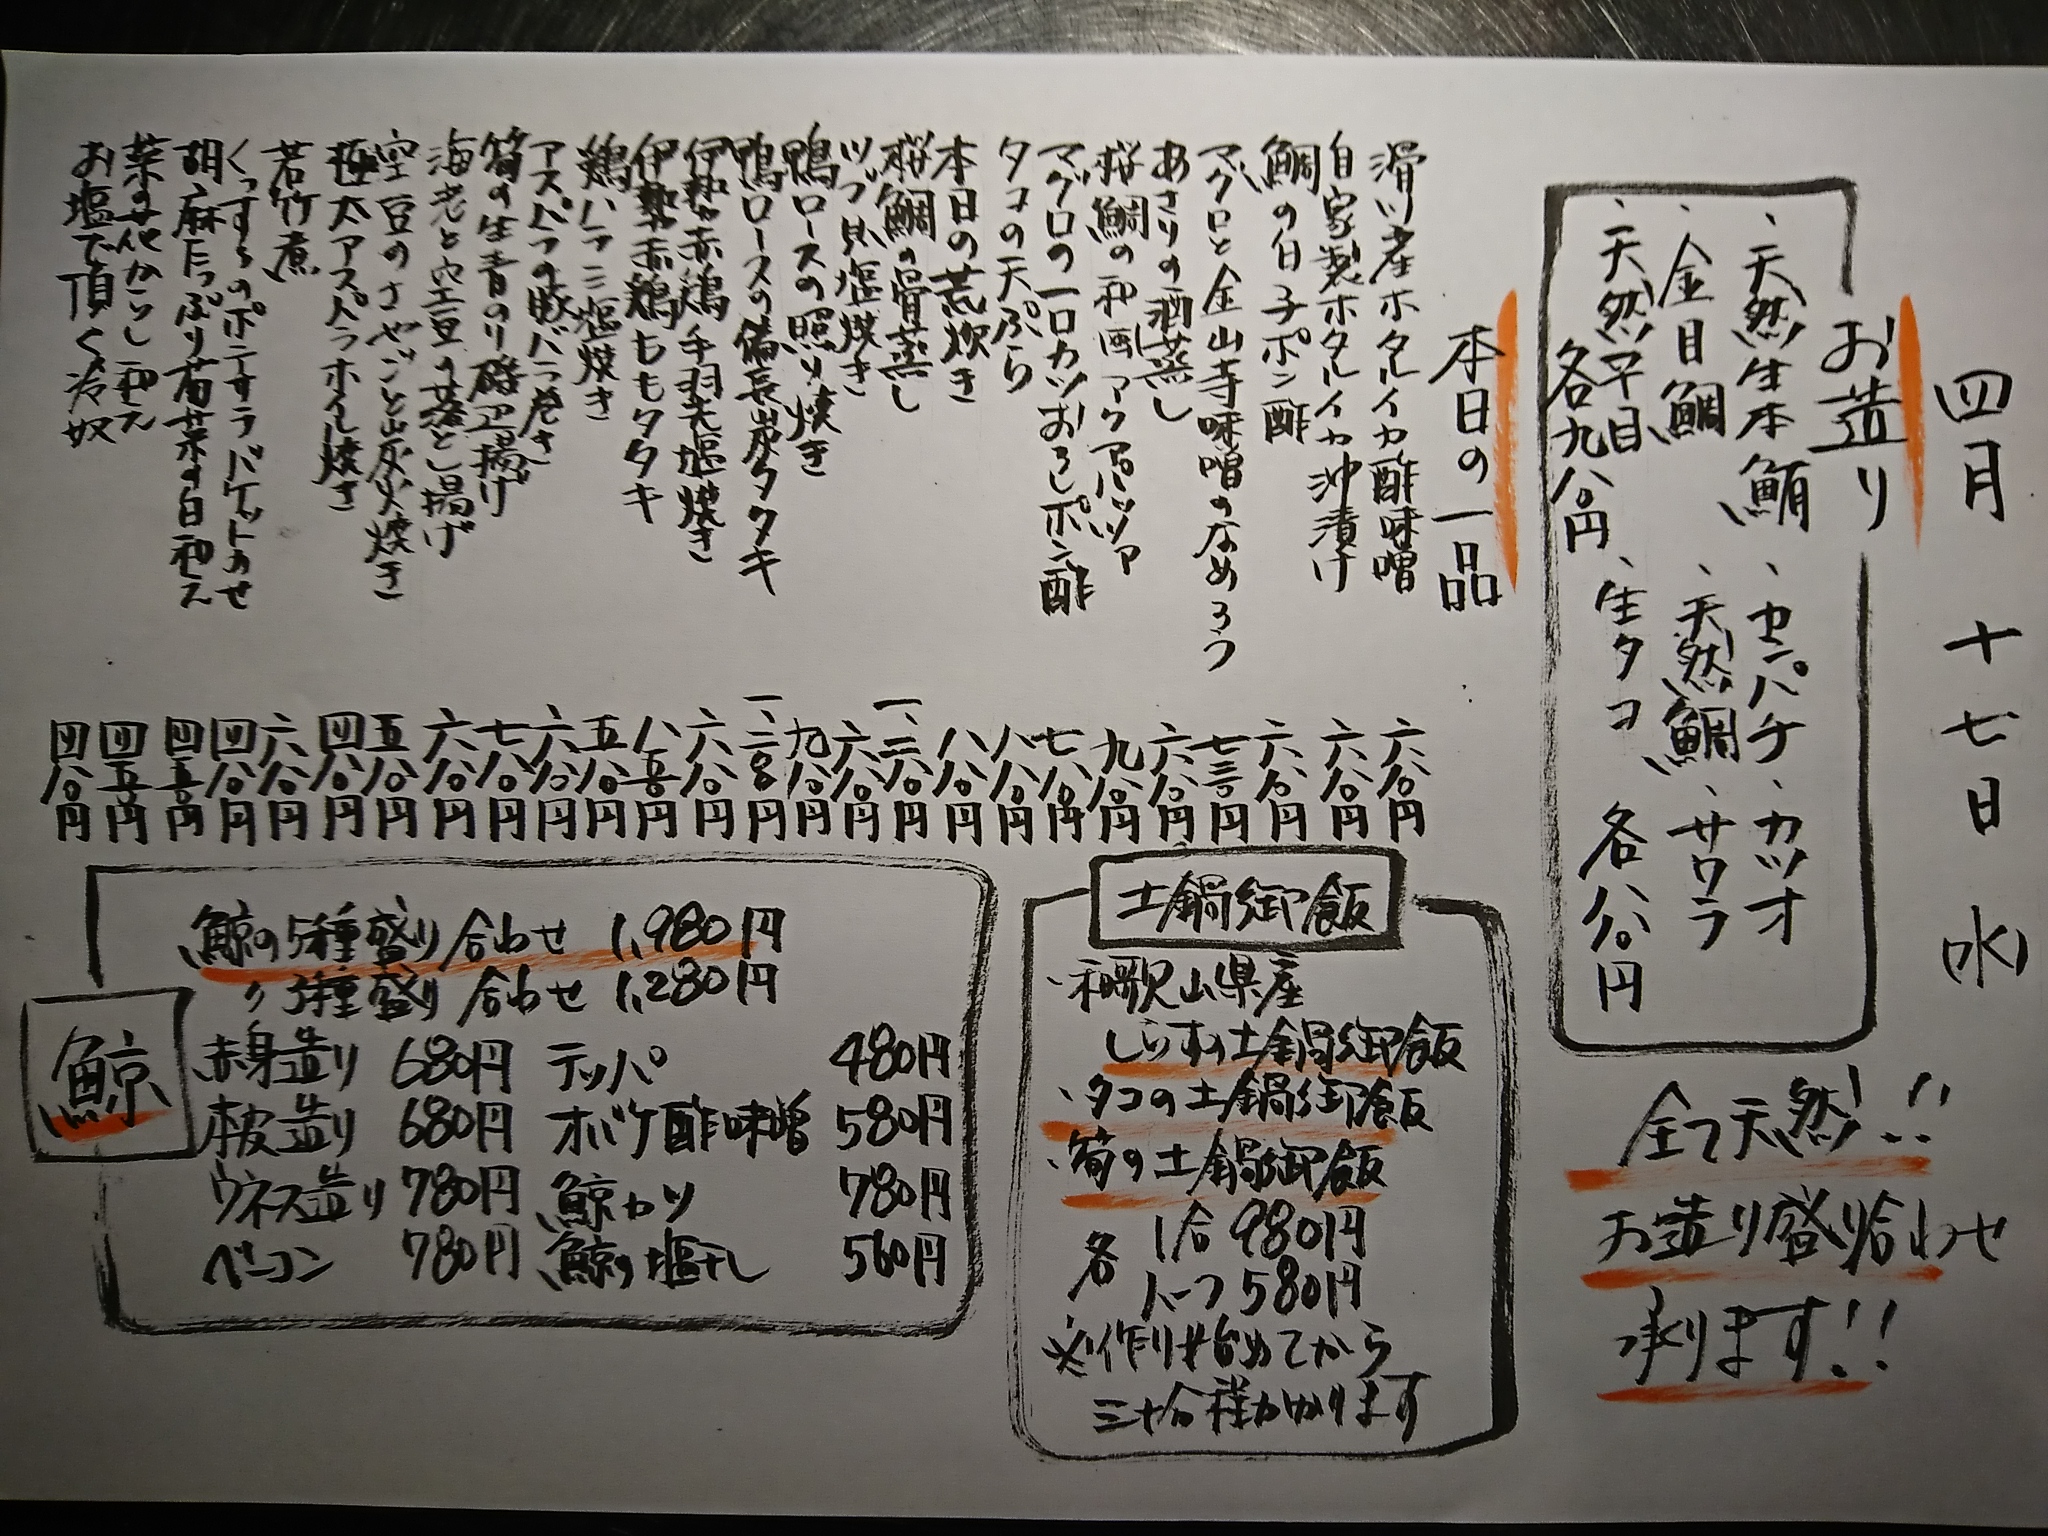 四月 十七日 水
お造り
、天然生本鮪 、センパチ 、カツオ
、金目鯛 、天然鯛 、サワラ
、天然平目 、生タコ
各九八〇円 各八八〇円
全て天然!!
お造り盛り合わせ
承ります!!
本日の一品
滑川産ホタルイカ酢味噌 六八〇円
自家製ホタルイカ沖漬け 六八〇円
鯛の白子ポン酢 六八〇円
マグロと金山寺味噌のなめろう 七三〇円
あさりの酒蒸し 六八〇円
桜鯛の和風アクアパッツァ 九八〇円
マグロの一口カツおろしポン酢 七八〇円
タコの天ぷら 八八〇円
本日の荒炊き 八八〇円
桜鯛の骨蒸し 一、二八〇円
ツブ貝塩焼き 六八〇円
鴨ロースの照り焼き 九八〇円
鴨ロースの備長炭タタキ 一、二八〇円
伊勢赤鶏手羽先塩焼き 六八〇円
伊勢赤鶏ももタタキ 八五〇円
鶏ハラミ塩焼き 五八〇円
アスパラの豚バラ巻き 六八〇円
筍の生青のり磯辺揚げ 七八〇円
海老と空豆の落とし揚げ 六八〇円
空豆のさやごと炭火焼き 五八〇円
極太アスパラホイル焼き 四八〇円
若竹煮 六八〇円
ポテサラバケットのせ 四八〇円
胡麻たっぷり菊菜の白和え 四五〇円
菜の花からし和え 四五〇円
お塩で頂く冷奴 四八〇円
土鍋御飯
・和歌山県産
しらすの土鍋御飯
・タコの土鍋御飯
・筍の土鍋御飯
各 1合 980円
ハーフ 580円
※作り始めてから
三十分程かかります
鯨
鯨の5種盛り合わせ 1,980円
〃 3種盛り合わせ 1,280円
赤身造り 680円 テッパ 480円
本皮造り 680円 オバケ酢味噌 580円
ウネス造り 780円 鯨カツ 780円
ベーコン 780円 鯨の塩干し 560円